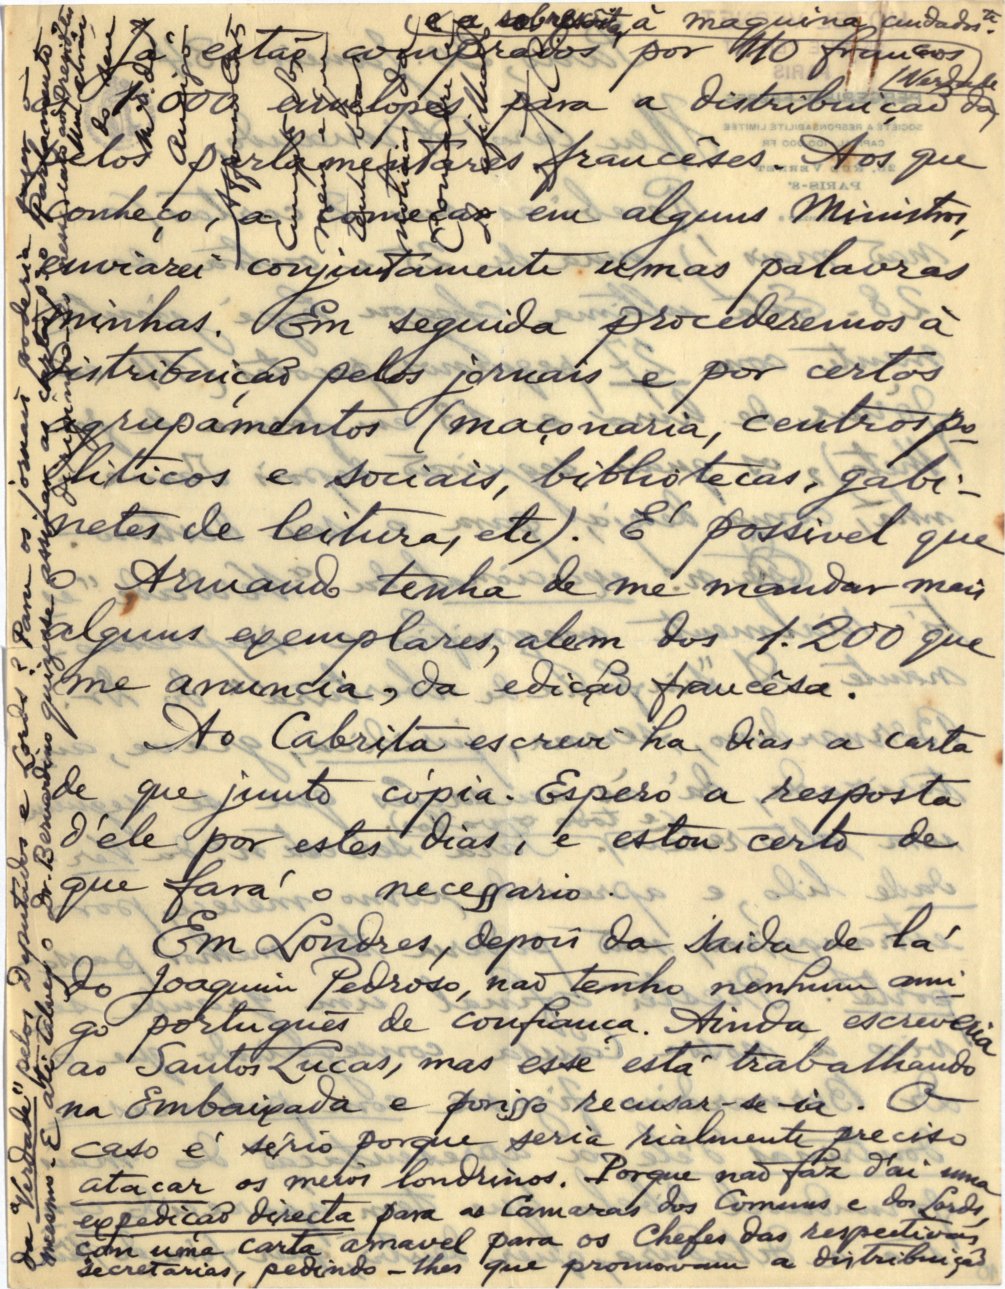 Já estão comprados por 110 francos
1.000 envelopes para a distribuição da "Verdade"
pelos parlamentares francêses. Aos que
conheço, a começar em alguns Ministros,
enviarei conjuntamente umas palavras
minhas. Em seguida procederemos á
distribuição pelos jornais e por certos
agrupamentos (maçonaria, centros po-
liticos e sociais, bibliotecas, gabi-
netes de leitura, etc). É possivel que
o Armando tenha de me mandar mais
alguns exemplares, alem dos 1.200 que
me anuncia, da edição francêsa.
Ao Cabrita escrevi ha dias a carta
de que junto cópia. Espero a resposta
d'ele por estes dias, e estou certo de
que fará o necessario.
Em Londres, depois da saida de lá
do Joaquim Pedroso, não tenho nenhum ami-
go português de confiança. Ainda escreveria
ao Santos Lucas, mas esse está trabalhando
na Embaixada e porisso recusar-se-ia. O
caso é sério porque seria rialmente preciso
atacar os meios londrinos. Porque não faz d'aí uma
expedição directa para as Camaras dos Comuns e dos Lords,
com uma carta amavel para os Chefes das respectivas
secretarias, pedindo-lhes que promovam a distribuição
da "Verdade" pelos Deputados e Lords? Para os jornais poderia fazer o
mesmo. E até talvez o Dr. Bernardino quizesse assinar as cartas pro Parlamento
e a sobrescritar á maquina, cuidados.te